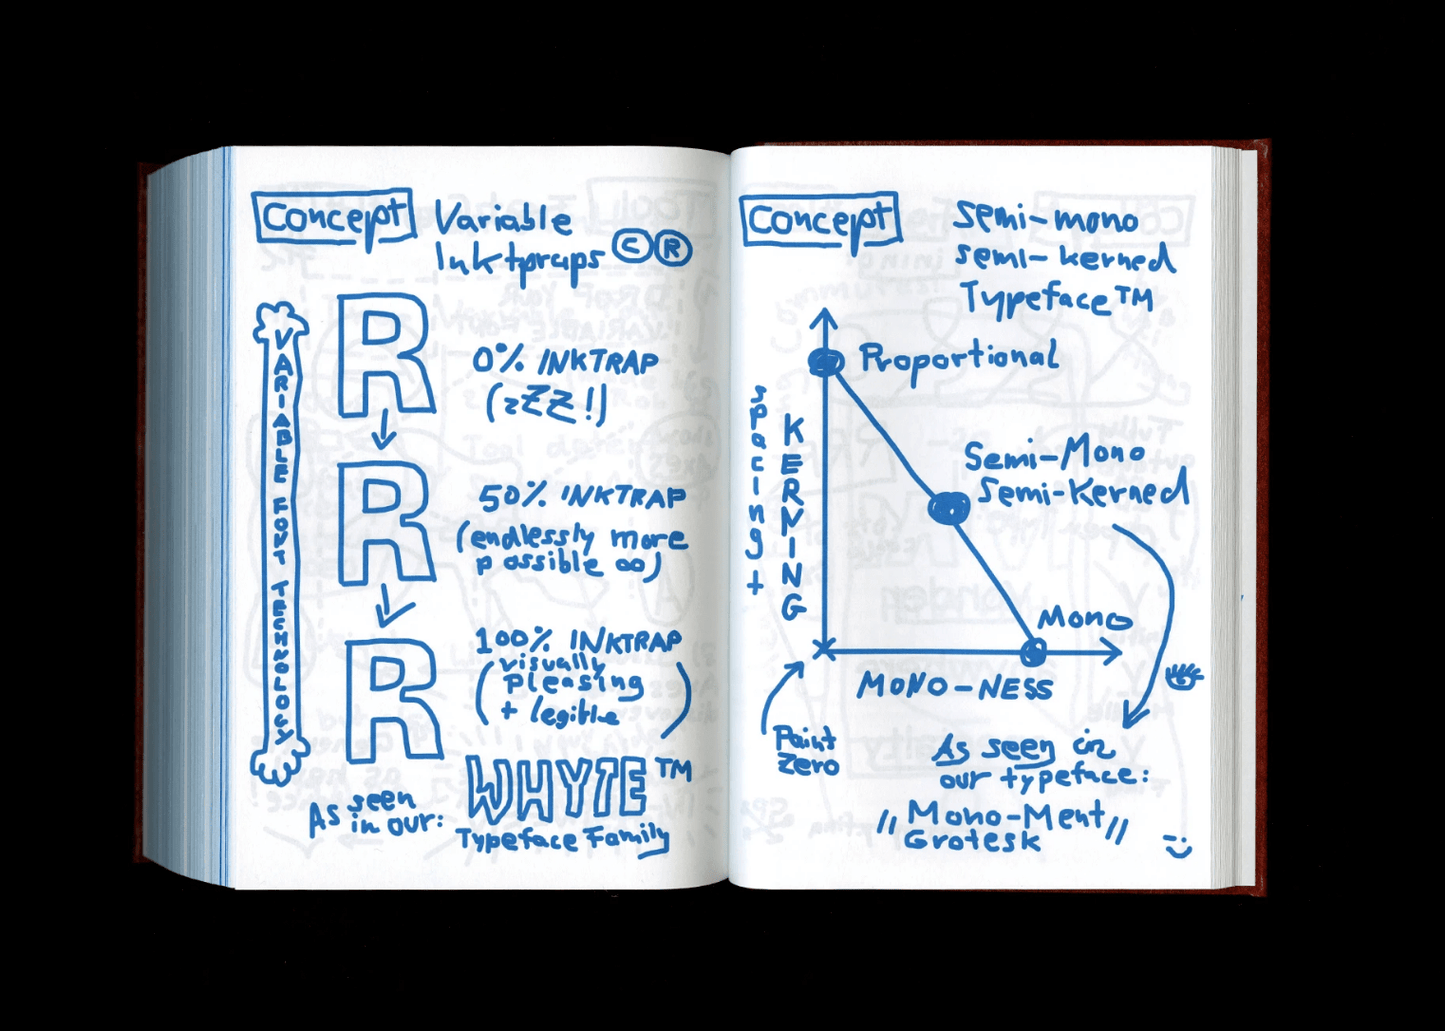 Concept
Variable
Inktpraps © ®
VARIABLE FONT TECHNOLOGY
R
0% INKTRAP
(zZZ!)
R
50% INKTRAP
(endlessly more
possible ∞)
R
100% INKTRAP
(visually
pleasing
+ legible)
As seen
in our:
WHYTE™
Typeface Family
Concept
Semi-mono
semi-kerned
Typeface™
Proportional
spacing +
KERNING
Semi-Mono
Semi-Kerned
Mono
MONO-NESS
Point
Zero
As seen in
our typeface:
"Mono-Ment
Grotesk"